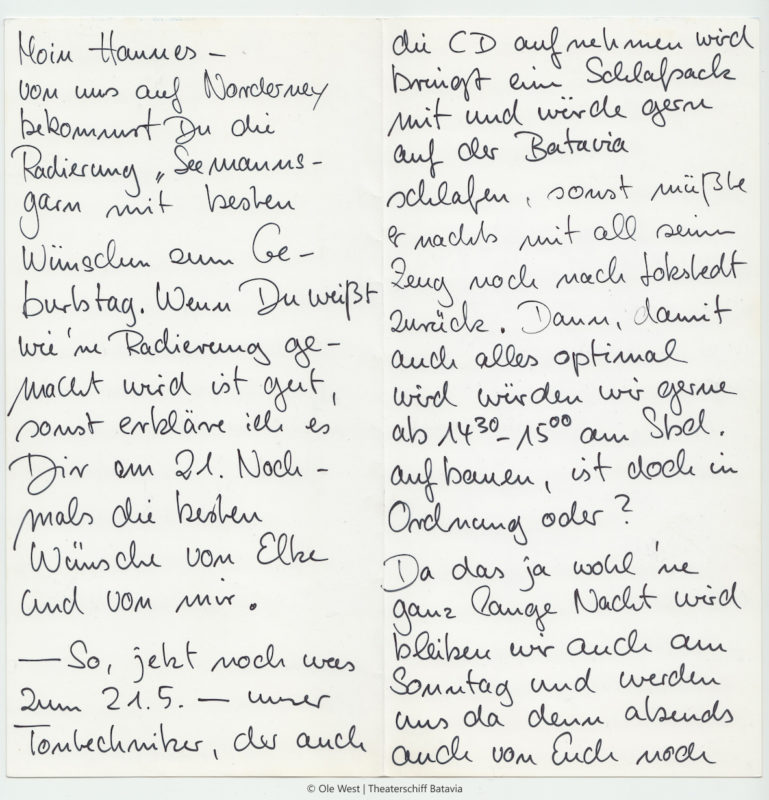 Moin Hannes –
von uns auf Norderney
bekommst Du die
Radierung „Seemanns-
garn mit besten
Wünschen zum Ge-
burtstag. Wenn Du weißt
wie 'ne Radierung ge-
macht wird ist gut,
sonst erkläre ich es
Dir am 21. Noch-
mals die besten
Wünsche von Elke
und von mir.
— So, jetzt noch was
zum 21.5. — unser
Tontechniker, der auch
die CD aufnehmen wird
bringt ein Schlafsack
mit und würde gern
auf der Batavia
schlafen, sonst müßte
er nachts mit all seinm
Zeug noch nach Lokstedt
zurück. Dann, damit
auch alles optimal
wird würden wir gerne
ab 14³⁰–15⁰⁰ am Sbd.
aufbauen, ist doch in
Ordnung oder?
Da das ja wohl 'ne
ganz lange Nacht wird
bleiben wir auch am
Sonntag und werden
uns da denn abends
auch von Euch noch
© Ole West | Theaterschiff Batavia